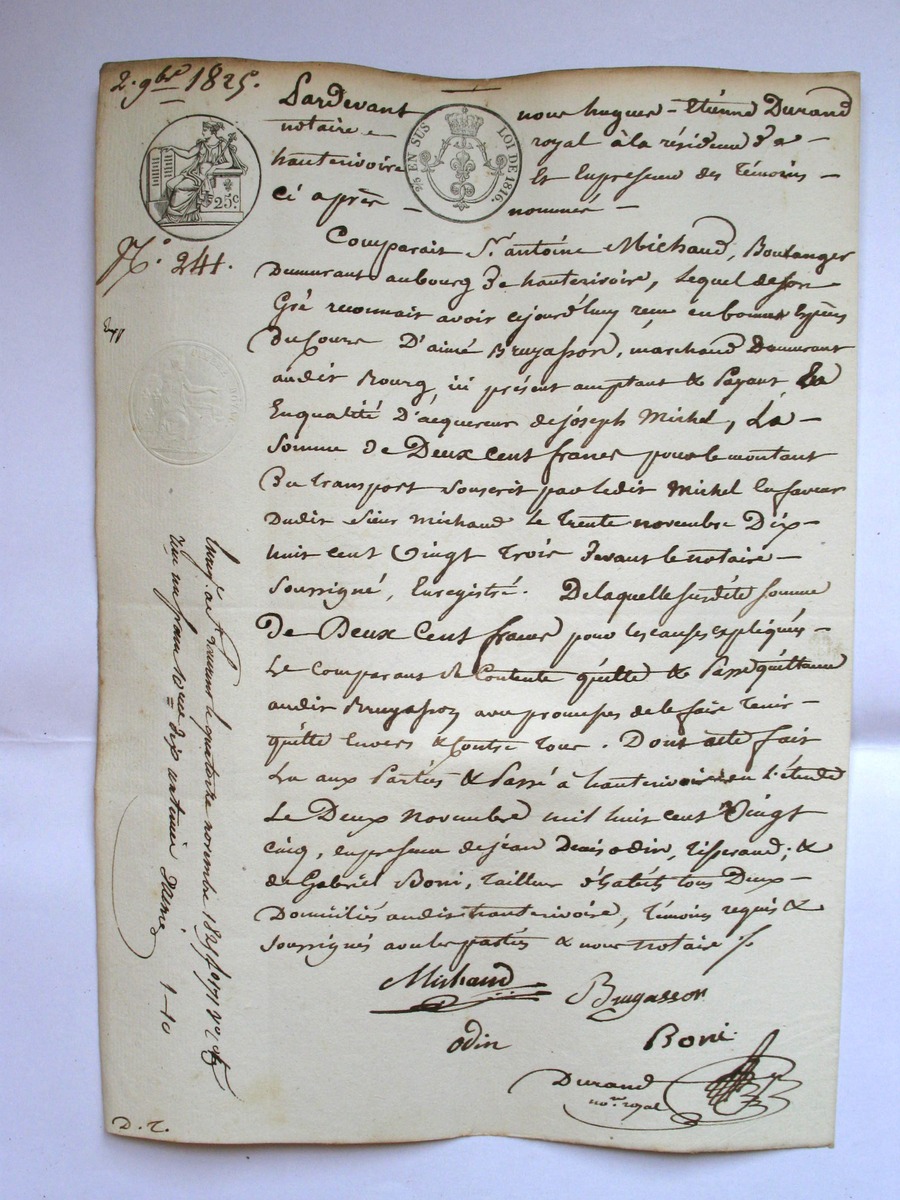 2. 9bre 1825.
Pardevant nous hugues = Etiénne Durand
notaire royal à la résidence de
hauterivoire Et Enpresence des Témoins
Ci après nommés
EN SUS LOI DE 1816.
25c
N.° 241.
Comparait Sr. antoine Michaud, Boulanger
Demeurant aubourg de hauterivoire, Lequel deson
Gré reconnait avoir cejourd'huy recu enbonnes Espèces
Ducours D'aimé Bruyasson, marchand Demeurant
audit Bourg, ici présent acceptant & Payant
Enqualité D'acquereur de joseph Michel, La
Somme de Deux Cent francs pour le montant
Du transport souscrit par ledit Michel En faveur
Dudit sieur Michaud le trente novembre Dix
huit cent Vingt trois Devant le notaire
Soussigné, Enregistré. Delaquelle susdite somme
De Deux Cent francs pour les causes expliqués
Le Comparant se Contente quitte & Passe quittance
audit Bruyasson avec promesses de le faire tenir
quitte Envers & Contre tous. Dont acte fait
Lu aux Parties & Passé à hauterivoire en l'étude
Le Deux novembre mil huit cent Vingt
Cinq, en presence de jean Denis odin, Tisserand; &
de Gabriel Boni, tailleur d'habits tous Deux
Domiciliés audit hauterivoire, témoins requis &
soussignés avec les parties & nous notaire
Michaud Bruyasson
odin Boni
Durand
nore. royal
Enreg. à St Laurent le quatorze novembre 1825
Reçu un franc 10 ces = dix centimes
1-10
D. R.